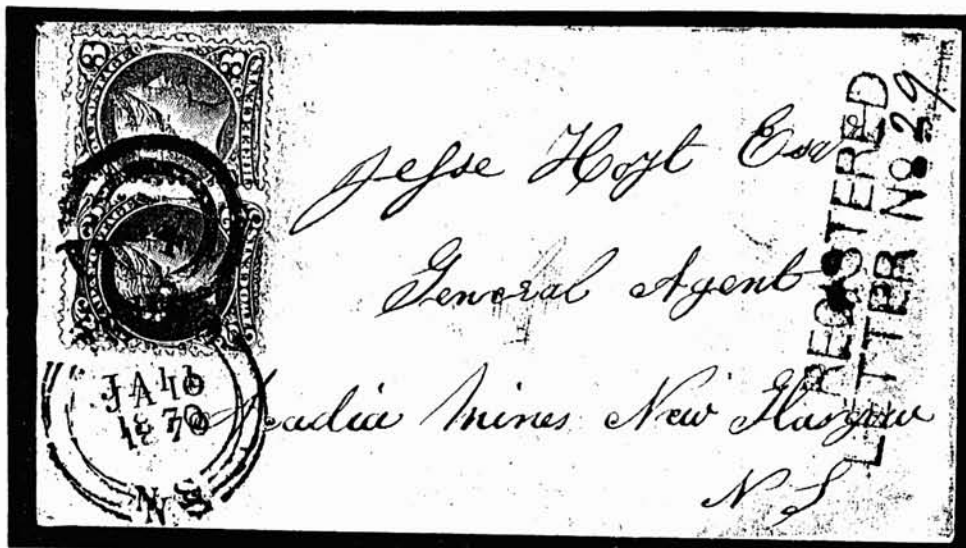 Jesse Hoyt Esq
General Agent
Acadia Mines New Glasgow
N S
REGISTERED
LETTER No 29
JA 10
1870